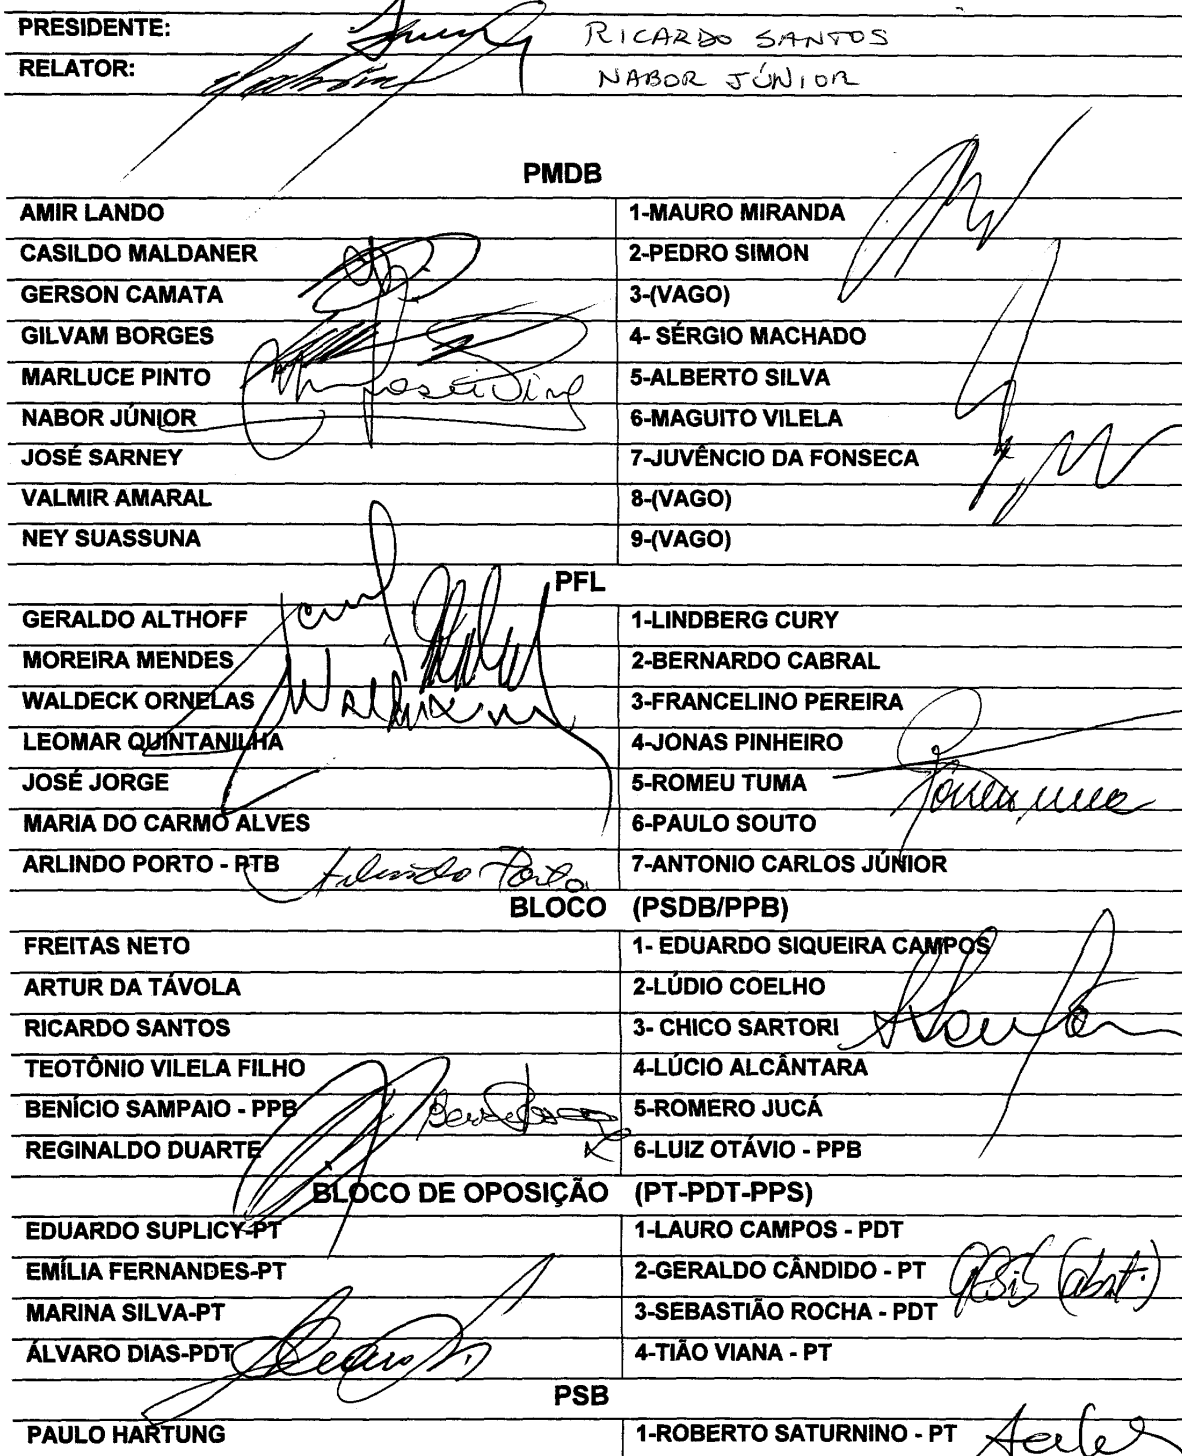 PRESIDENTE: RICARDO SANTOS
RELATOR: NABOR JÚNIOR
PMDB
AMIR LANDO 1-MAURO MIRANDA
CASILDO MALDANER 2-PEDRO SIMON
GERSON CAMATA 3-(VAGO)
GILVAM BORGES 4- SÉRGIO MACHADO
MARLUCE PINTO 5-ALBERTO SILVA
NABOR JÚNIOR 6-MAGUITO VILELA
JOSÉ SARNEY 7-JUVÊNCIO DA FONSECA
VALMIR AMARAL 8-(VAGO)
NEY SUASSUNA 9-(VAGO)
PFL
GERALDO ALTHOFF 1-LINDBERG CURY
MOREIRA MENDES 2-BERNARDO CABRAL
WALDECK ORNELAS 3-FRANCELINO PEREIRA
LEOMAR QUINTANILHA 4-JONAS PINHEIRO
JOSÉ JORGE 5-ROMEU TUMA
MARIA DO CARMO ALVES 6-PAULO SOUTO
ARLINDO PORTO - PTB Arlindo Porto 7-ANTONIO CARLOS JÚNIOR
BLOCO (PSDB/PPB)
FREITAS NETO 1- EDUARDO SIQUEIRA CAMPOS
ARTUR DA TÁVOLA 2-LÚDIO COELHO
RICARDO SANTOS 3- CHICO SARTORI
TEOTÔNIO VILELA FILHO 4-LÚCIO ALCÂNTARA
BENÍCIO SAMPAIO - PPB 5-ROMERO JUCÁ
REGINALDO DUARTE 6-LUIZ OTÁVIO - PPB
BLOCO DE OPOSIÇÃO (PT-PDT-PPS)
EDUARDO SUPLICY-PT 1-LAURO CAMPOS - PDT
EMÍLIA FERNANDES-PT 2-GERALDO CÂNDIDO - PT (abst.)
MARINA SILVA-PT 3-SEBASTIÃO ROCHA - PDT
ÁLVARO DIAS-PDT 4-TIÃO VIANA - PT
PSB
PAULO HARTUNG 1-ROBERTO SATURNINO - PT